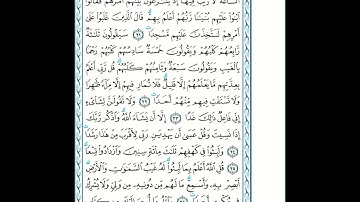 ٱلسَّاعَةَ لَا رَيْبَ فِيهَآ إِذْ يَتَنَٰزَعُونَ بَيْنَهُمْ أَمْرَهُمْ فَقَالُوا۟
ٱبْنُوا۟ عَلَيْهِم بُنْيَٰنًا رَّبُّهُمْ أَعْلَمُ بِهِمْ قَالَ ٱلَّذِينَ غَلَبُوا۟ عَلَىٰٓ
أَمْرِهِمْ لَنَتَّخِذَنَّ عَلَيْهِم مَّسْجِدًا ٢١ سَيَقُولُونَ ثَلَٰثَةٌ
رَّابِعُهُمْ كَلْبُهُمْ وَيَقُولُونَ خَمْسَةٌ سَادِسُهُمْ كَلْبُهُمْ رَجْمًۢا
بِٱلْغَيْبِ وَيَقُولُونَ سَبْعَةٌ وَثَامِنُهُمْ كَلْبُهُمْ قُل رَّبِّىٓ أَعْلَمُ
بِعِدَّتِهِم مَّا يَعْلَمُهُمْ إِلَّا قَلِيلٌ فَلَا تُمَارِ فِيهِمْ إِلَّا مِرَآءً ظَٰهِرًا
وَلَا تَسْتَفْتِ فِيهِم مِّنْهُمْ أَحَدًا ٢٢ وَلَا تَقُولَنَّ لِشَا۟ىْءٍ
إِنِّى فَاعِلٌ ذَٰلِكَ غَدًا ٢٣ إِلَّآ أَن يَشَآءَ ٱللَّهُ وَٱذْكُر رَّبَّكَ
إِذَا نَسِيتَ وَقُلْ عَسَىٰٓ أَن يَهْدِيَنِ رَبِّى لِأَقْرَبَ مِنْ هَٰذَا رَشَدًا
٢٤ وَلَبِثُوا۟ فِى كَهْفِهِمْ ثَلَٰثَ مِا۟ئَةٍ سِنِينَ وَٱزْدَادُوا۟ تِسْعًا
٢٥ قُلِ ٱللَّهُ أَعْلَمُ بِمَا لَبِثُوا۟ لَهُۥ غَيْبُ ٱلسَّمَٰوَٰتِ وَٱلْأَرْضِ
أَبْصِرْ بِهِۦ وَأَسْمِعْ مَا لَهُم مِّن دُونِهِۦ مِن وَلِىٍّ وَلَا يُشْرِكُ